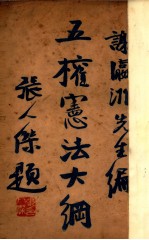 謝瀛洲先生編
五權憲法大綱
張人傑題